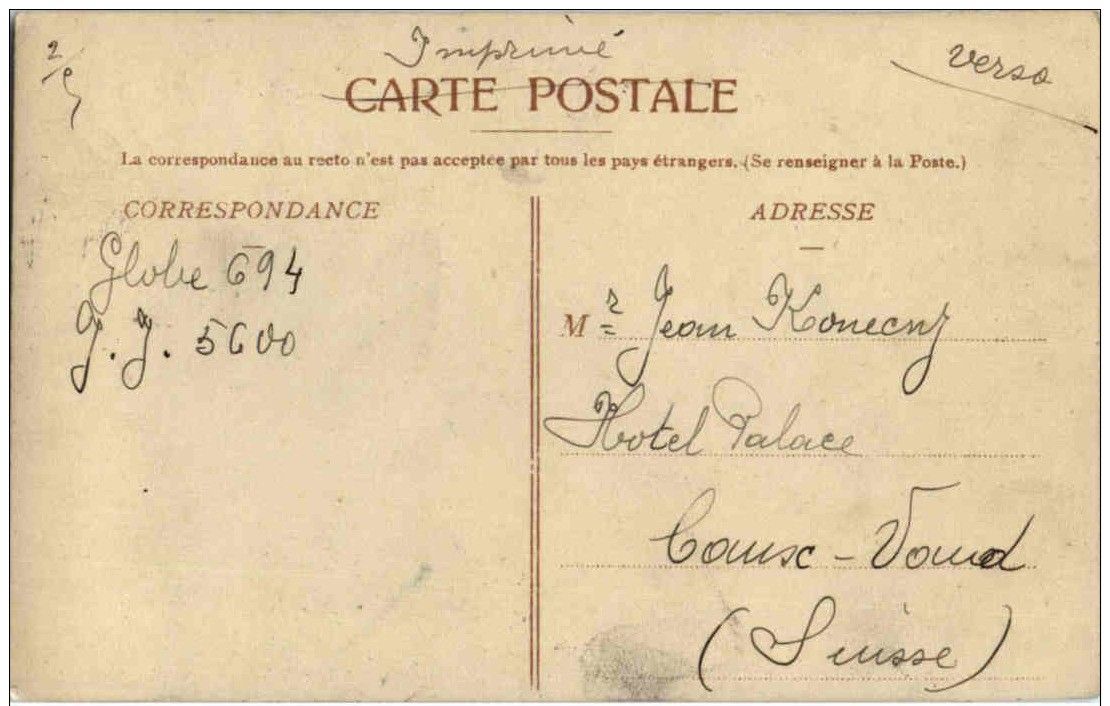 Imprimé
verso
CARTE POSTALE
La correspondance au recto n'est pas acceptée par tous les pays étrangers. (Se renseigner à la Poste.)
CORRESPONDANCE
Globe 694
J. J. 5600
ADRESSE
Mr Jean Konecny
Hotel Palace
Caux - Vaud
(Suisse)